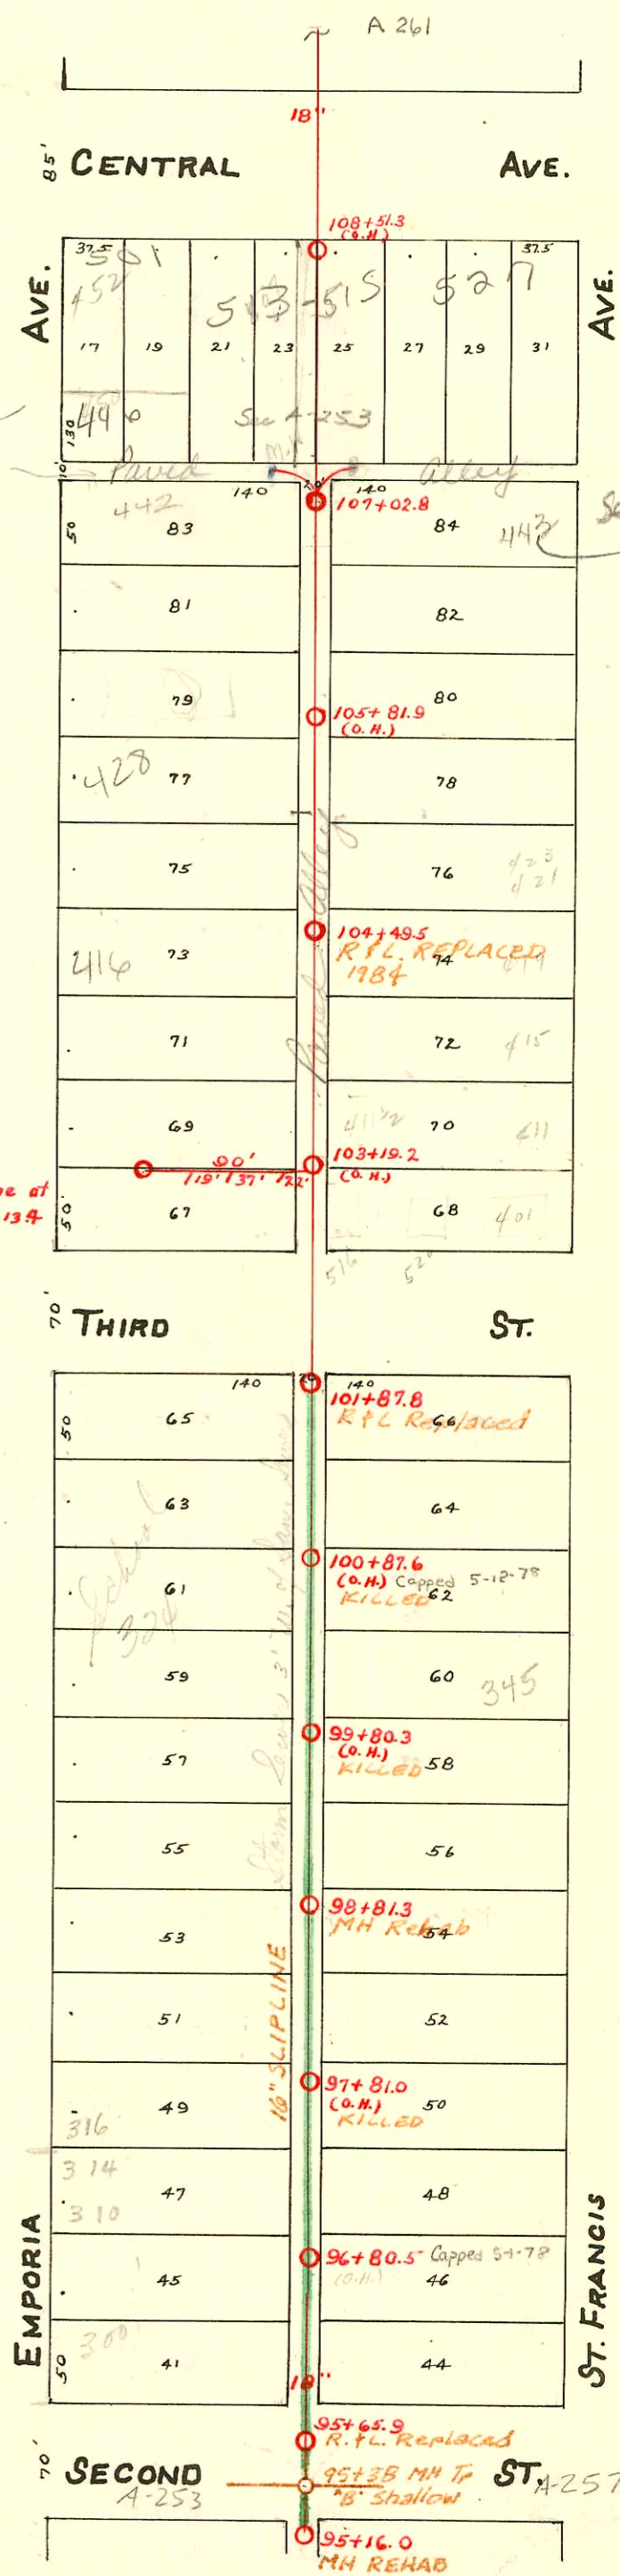 A 261
18"
85'
CENTRAL AVE.
108+51.3
(O.H.)
AVE.
AVE.
37.5
37.5
501
452
513-515
527
17 19 21 23 25 27 29 31
130
446
See A-253
M.H.
10'
Paved Alley
140 20' 140
107+02.8
442
50
83 84
443
81 82
79 80
105+81.9
(O.H.)
428
77 78
75 76
423
421
Paved Alley
104+49.5
R & L. REPLACED
1984
416
73 74
71 72
415
69 70
411½
411
103+19.2
(O.H.)
90'
119' 137' 122'
ne at
134
50'
67 68
401
516
520
70'
THIRD ST.
140 20' 140
101+87.8
R & L Replaced
50
65 66
63 64
100+87.6
(O.H.) Capped 5-12-78
KILLED
School
324
61 62
59 60
345
Storm Sewer 3' W. of Sany Sewer
99+80.3
(O.H.)
KILLED
57 58
55 56
98+81.3
MH Rehab
53 54
16" SLIPLINE
51 52
97+81.0
(O.H.)
KILLED
49 50
316
314
47 48
310
96+80.5 Capped 5-1-78
(O.H.)
45 46
300
EMPORIA
ST. FRANCIS
50
41 44
18"
95+65.9
R. & L. Replaced
70'
SECOND ST.
A-253
A-257
95+38 MH Tp
"B" Shallow
95+16.0
MH REHAB